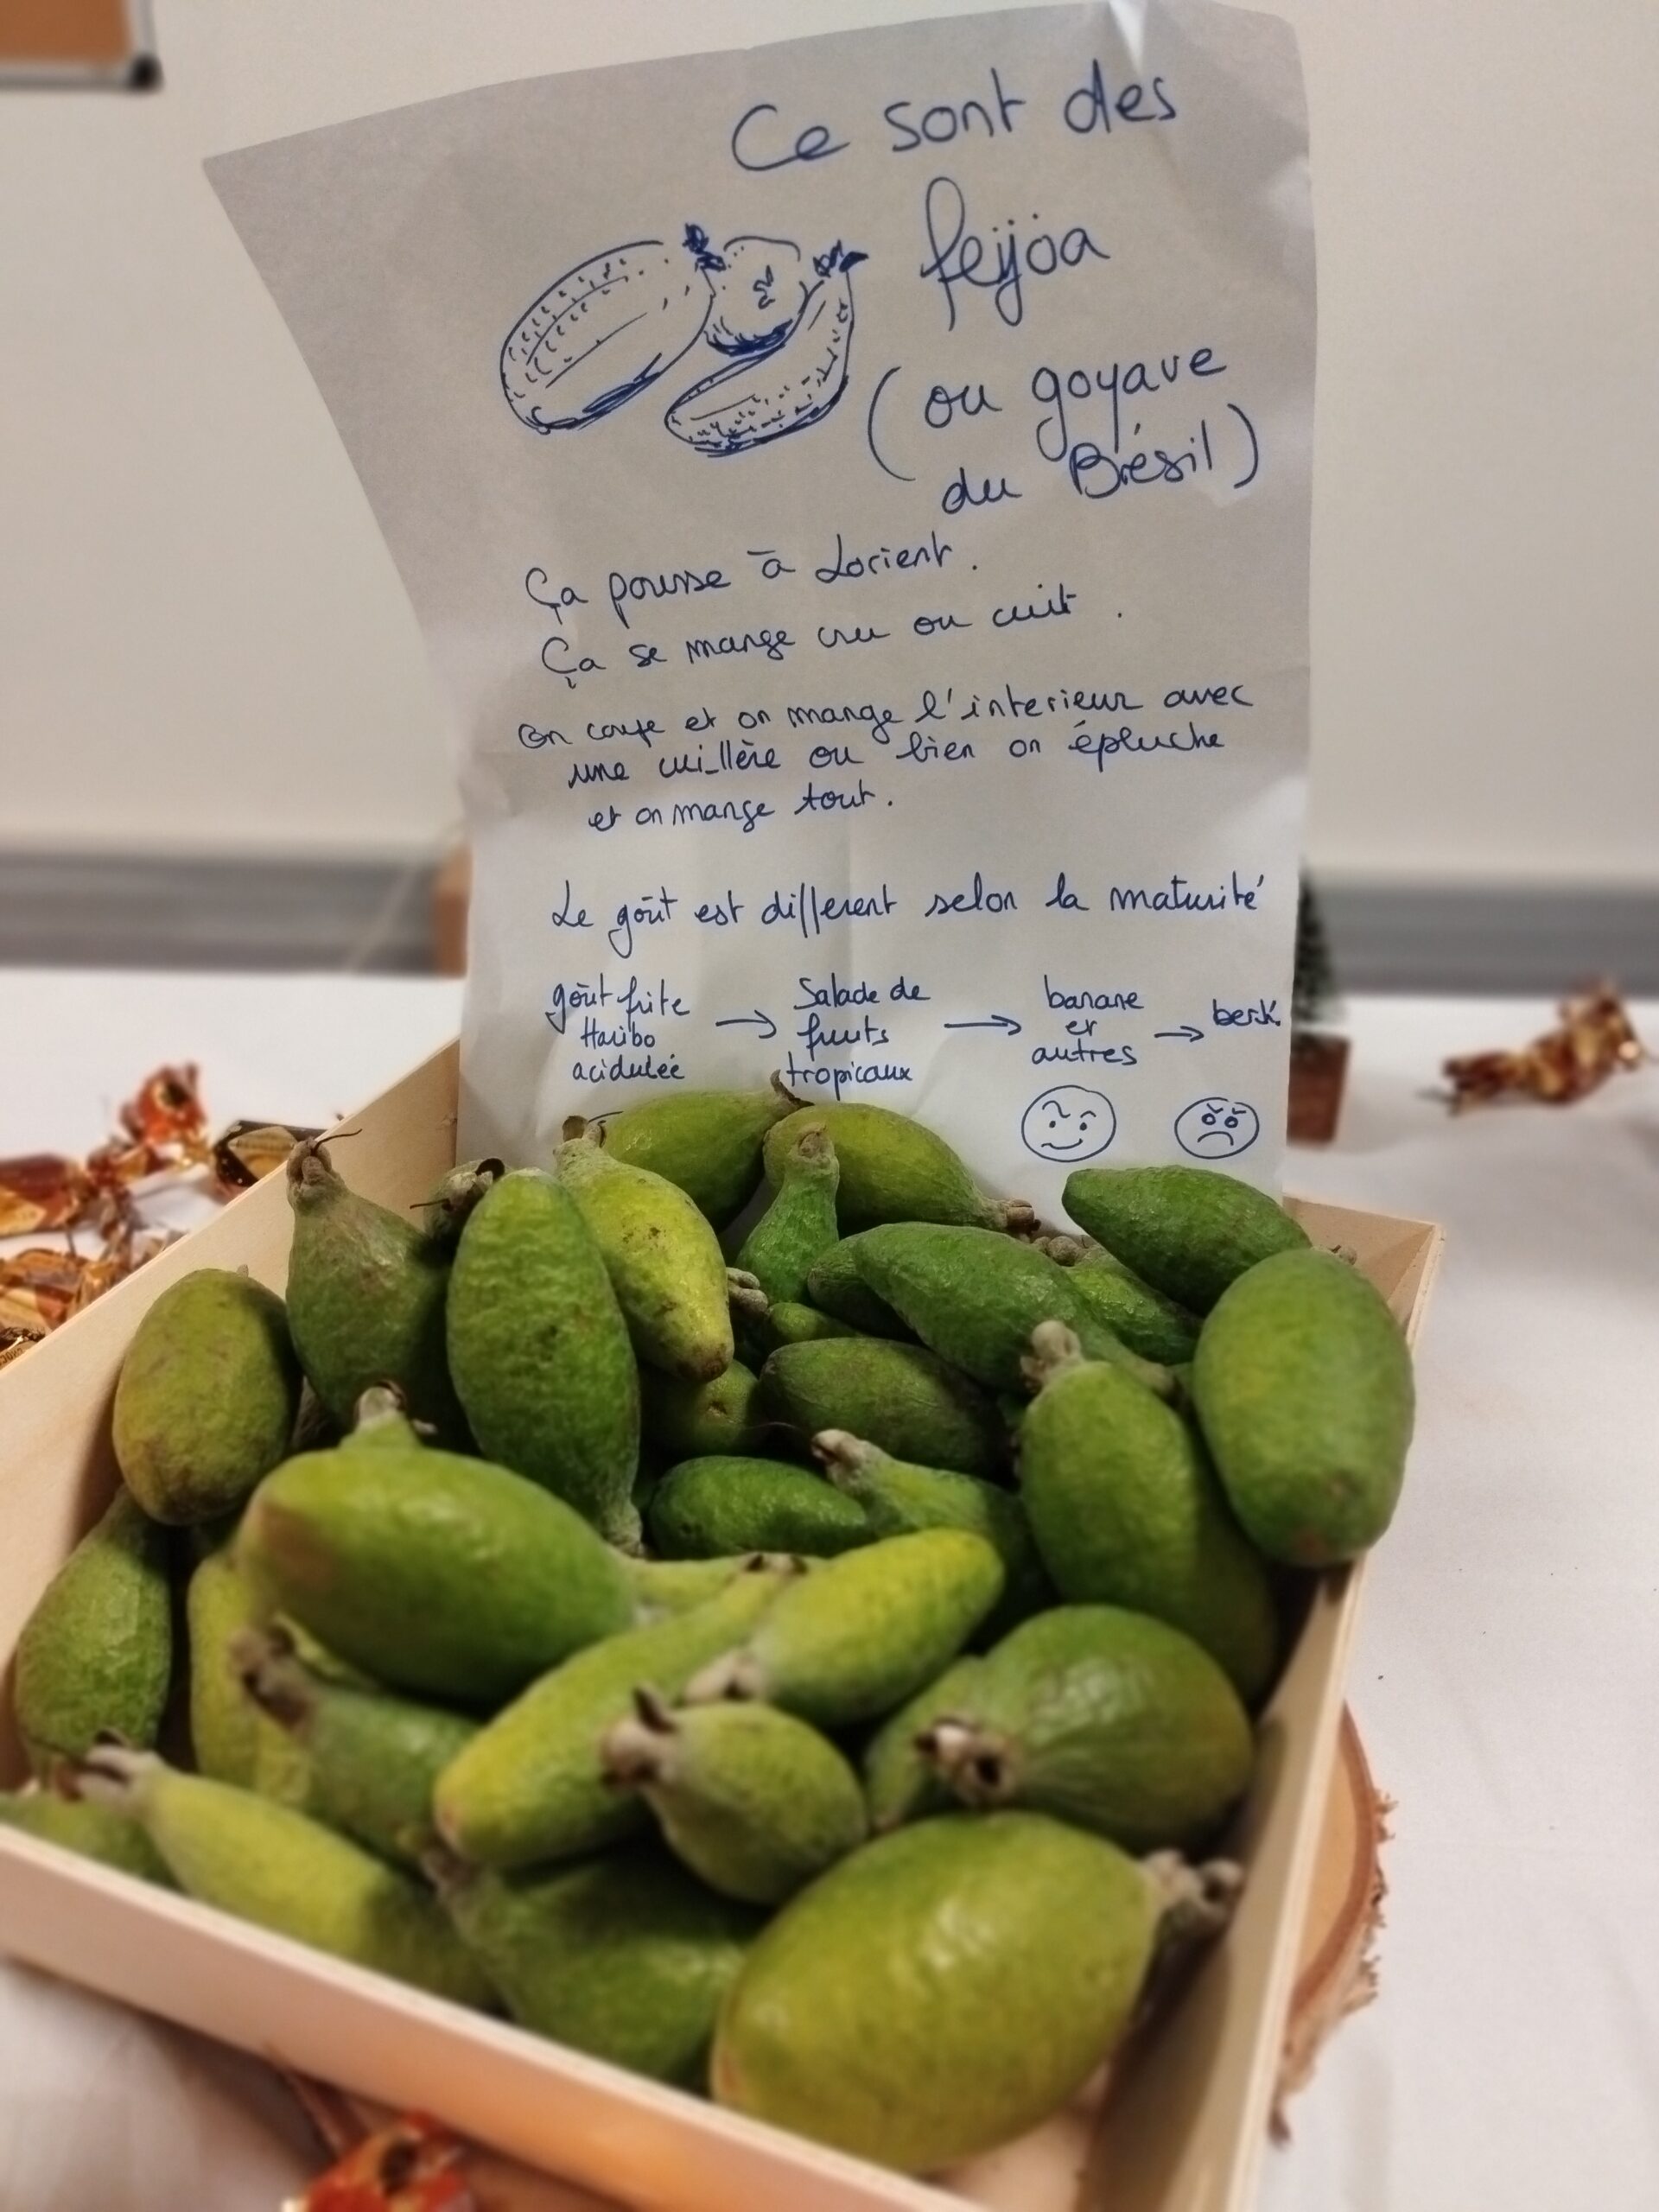 Ce sont des
feijoa
(ou goyave
du Brésil)
Ça pousse à Lorient.
Ça se mange cru ou cuit.
On coupe et on mange l'interieur avec
une cuillère ou bien on épluche
et on mange tout.
Le goût est différent selon la maturité
goût frite
Haribo
acidulée
→
Salade de
fruits
tropicaux
→
banane
et
autres
→
berk